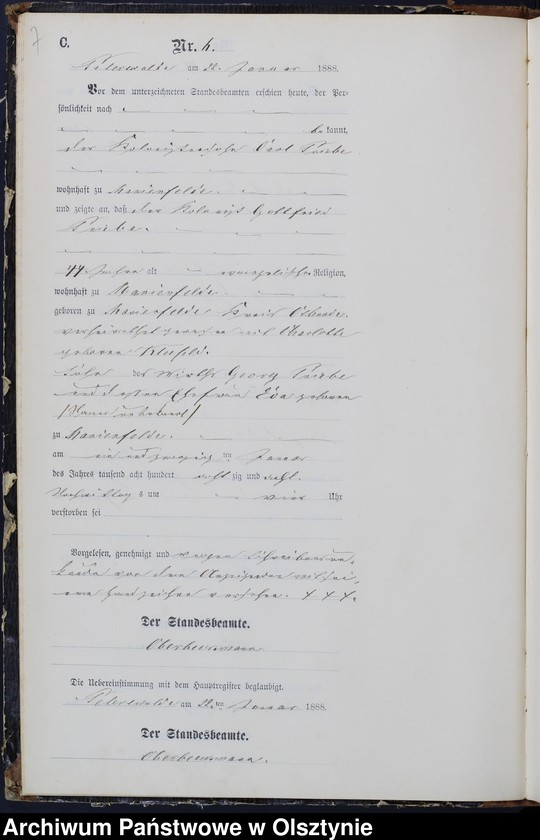 7
C.
Nr. 4.
Peterswalde am 22. Januar 1888.
Vor dem unterzeichneten Standesbeamten erschien heute, der Per-
sönlichkeit nach
bekannt,
der Carl
wohnhaft zu Marienfelde.
und zeigte an, daß der Gottfried
44 Jahre alt evangelischer Religion,
wohnhaft zu Marienfelde.
geboren zu Marienfelde Kreis Osterode.
verheirathet gewesen mit Charlotte
geborene
Sohn des Wirths Georg
und dessen Ehefrau Eva geborene
/Name unbekannt/
zu Marienfelde.
am ein und zwanzigten Januar
des Jahres tausend acht hundert acht zig und acht.
Nachmittags um vier Uhr
verstorben sei
Vorgelesen, genehmigt und wegen Schreibensun-
kunde von dem Anzeigenden mit sei-
nem Handzeichen versehen. + + +.
Der Standesbeamte.
Die Uebereinstimmung mit dem Hauptregister beglaubigt.
Peterswalde am 22.ten Januar 1888.
Der Standesbeamte.
Archiwum Państwowe w Olsztynie